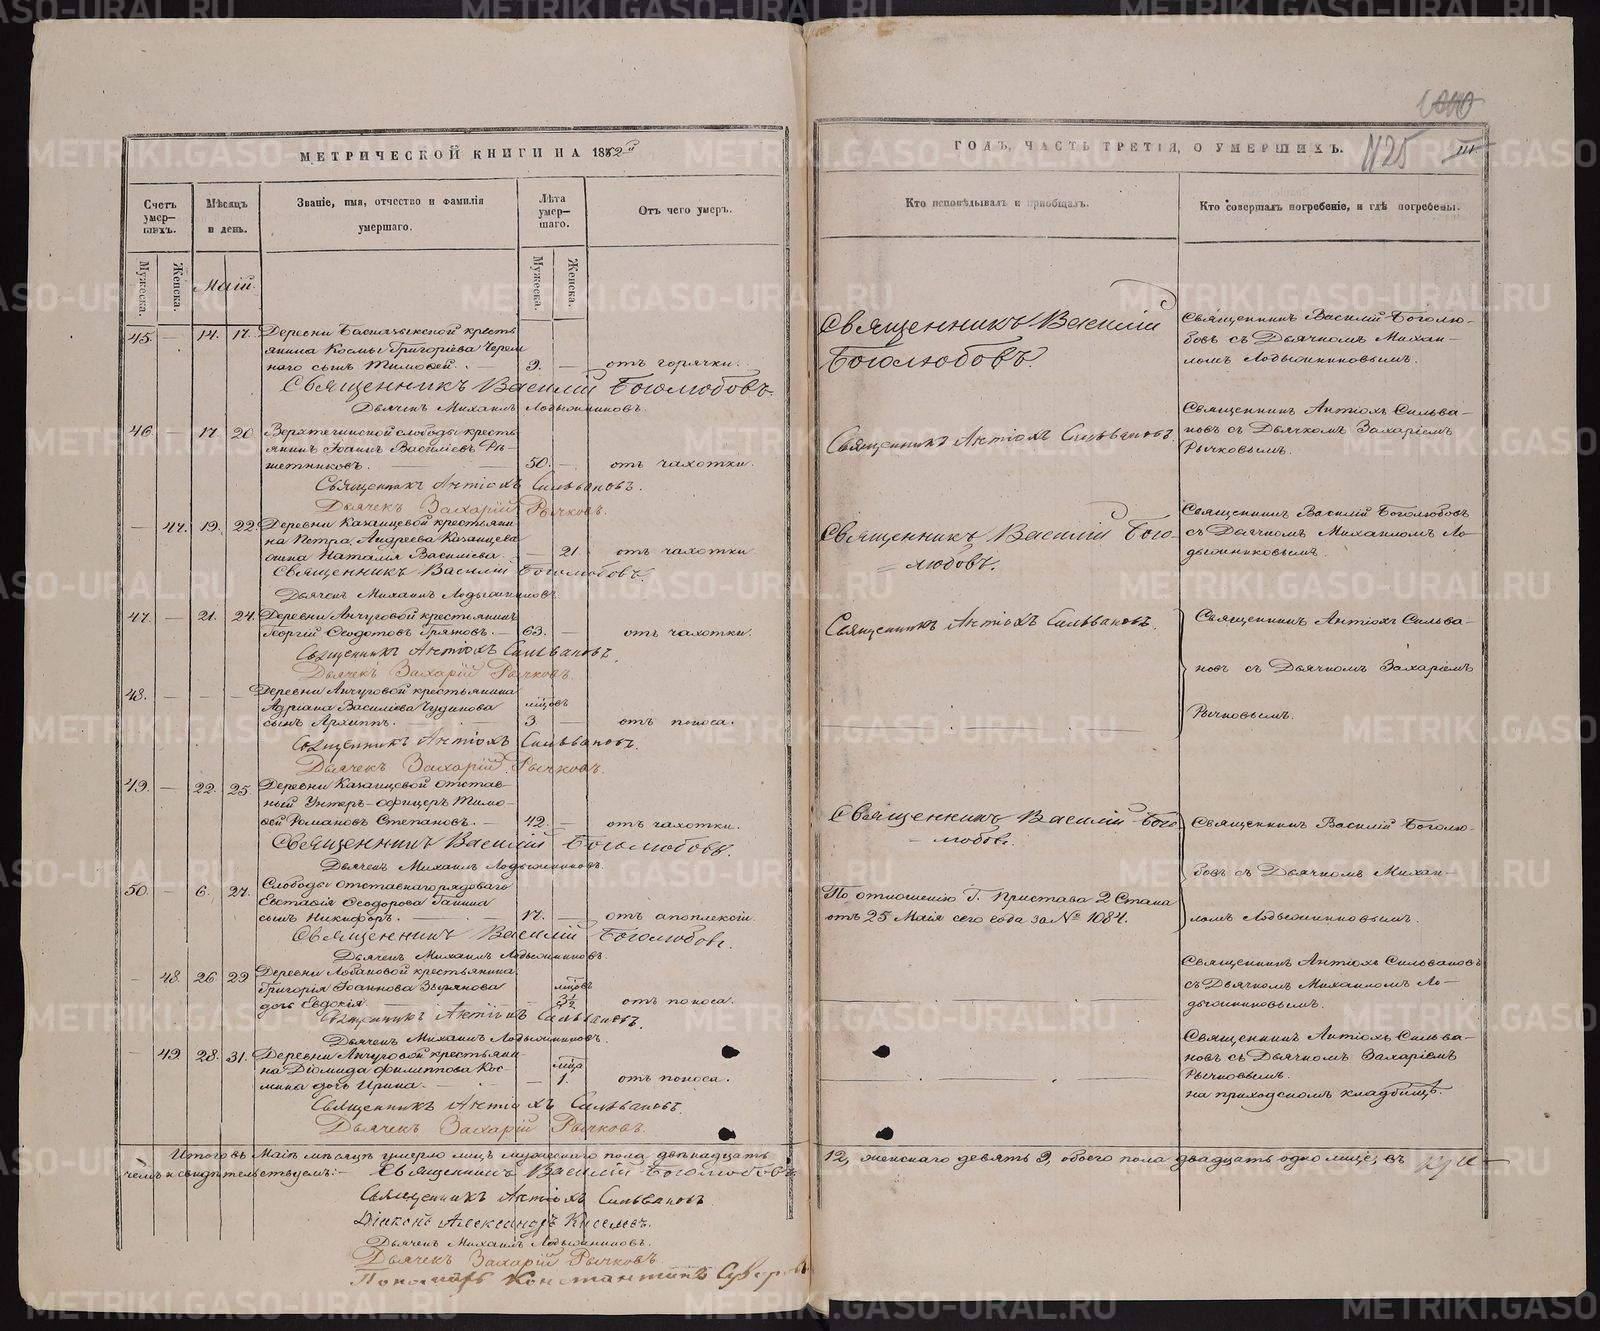 МЕТРИЧЕСКОЙ КНИГИ НА 1862й
ГОДЪ, ЧАСТЬ ТРЕТІЯ, О УМЕРШИХЪ.
1125
Счетъ умер-шихъ.
Мѣсяцъ и день.
Званіе, имя, отчество и фамилія умершаго.
Лѣта умер-шаго.
Отъ чего умеръ.
Кто исповѣдывалъ и пріобщалъ.
Кто совершалъ погребеніе, и гдѣ погребены.
Мужеска.
Женска.
Маій.
Мужеска.
Женска.
45. — 14. 17. Деревни крестъ
янина Космы Григоріева Черем
наго сынъ Тимофей. — 3. — отъ горячки.
Священникъ Василій Боголюбовъ.
Дьячекъ Михаилъ Лодыжниковъ.
Священникъ Василій
Боголюбовъ.
Священникъ Василій Боголю-
бовъ съ Дьячкомъ Михаи-
ломъ Лодыжниковымъ.
46. — 17. 20. Верхтечинской слободы кресть
янинъ Іоаннъ Василіевъ Рѣ-
шетниковъ. — 50. — отъ чахотки.
Священникъ Антіохъ Сильвановъ.
Дьячекъ Захарій Рычковъ.
Священникъ Антіохъ Сильвановъ.
Священникъ Антіохъ Сильва-
новъ съ Дьячкомъ Захаріемъ
Рычковымъ.
— 47. 19. 22. Деревни Казанцевой крестьяни-
на Петра Андреева Казанцева
жена Наталія Василіева — 21 отъ чахотки
Священникъ Василій Боголюбовъ.
Дьячекъ Михаилъ Лодыжниковъ
Священникъ Василій Бого-
= любовъ.
Священникъ Василій Боголюбовъ
съ Дьячкомъ Михаиломъ Ло-
дыжниковымъ.
47. — 21. 24. Деревни Анчуговой крестьянинъ
Георгій Ѳеодотовъ Грязновъ. — 63. — отъ чахотки.
Священникъ Антіохъ Сильвановъ.
Дьячекъ Захарій Рычковъ.
Священникъ Антіохъ Сильвановъ.
Священникъ Антіохъ Сильва-
новъ съ Дьячкомъ Захаріемъ
Рычковымъ.
48. — — — Деревни Анчуговой крестьянина
Адріана Василіева Чудинова
сынъ Архиппъ. — мѣсяцовъ 3 — отъ поноса.
Священникъ Антіохъ Сильвановъ.
Дьячекъ Захарій Рычковъ.
49. — 22. 25. Деревни Казанцевой отстав-
ный Унтеръ-офицеръ Тимо-
фей Романовъ Степановъ. — 42. — отъ чахотки.
Священникъ Василій Боголюбовъ.
Дьячекъ Михаилъ Лодыжниковъ.
Священникъ Василій Бого-
- любовъ.
Священникъ Василій Боголю-
бовъ съ Дьячкомъ Михаи-
ломъ Лодыжниковымъ.
50. — 6. 27. Слободы отставнаго рядоваго
Евстафія Ѳеодорова
сынъ Никифоръ. — 17. — отъ апоплексіи.
Священникъ Василій Боголюбовъ.
Дьячекъ Михаилъ Лодыжниковъ.
По отношенію Г. Пристава 2 Стана
отъ 25 Маія сего года за № 1084.
— 48. 26 29 Деревни Лобановой крестьянина
Григорія Іоаннова Зырянова
дочь Евдокія. — мѣсяцовъ 3½ отъ поноса.
Священникъ Антіохъ Сильвановъ.
Дьячекъ Михаилъ Лодыжниковъ.
Священникъ Антіохъ Сильвановъ
съ Дьячкомъ Михаиломъ Ло-
дыжниковымъ.
— 49. 28. 31. Деревни Анчуговой крестьяни-
на Діомида Филиппова Кос-
мина дочь Ирина. — мѣсяца 1. отъ поноса.
Священникъ Антіохъ Сильвановъ.
Дьячекъ Захарій Рычковъ.
Священникъ Антіохъ Сильва-
новъ съ Дьячкомъ Захаріемъ
Рычковымъ.
на приходскомъ кладбищѣ.
Итого въ Маіѣ мѣсяцѣ умерло лицъ мужескаго пола двѣнадцать 12, женскаго девять 9, обоего пола двадцать одно лице, въ
чемъ и свидѣтельствуемъ:- Священникъ Василій Боголюбовъ
Священникъ Антіохъ Сильвановъ
Діаконъ Александръ Киселевъ.
Дьячекъ Михаилъ Лодыжниковъ.
Дьячекъ Захарій Рычковъ.
Пономарь Константинъ
METRIKI.GASO-URAL.RU